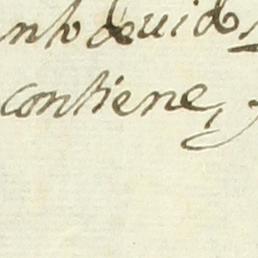 nto deuido
contiene,